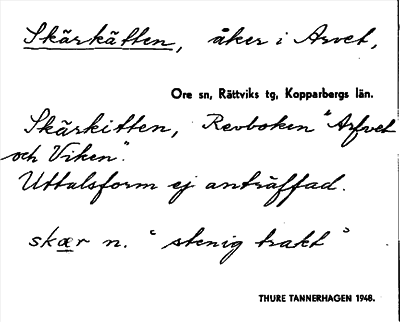 Skärkätten, åker i Arvet,
Ore sn, Rättviks tg, Kopparbergs län.
Skärkitten, Revboken "Arfvet
och Viken".
Uttalsform ej anträffad.
skær n. "stenig trakt"
THURE TANNERHAGEN 1948.